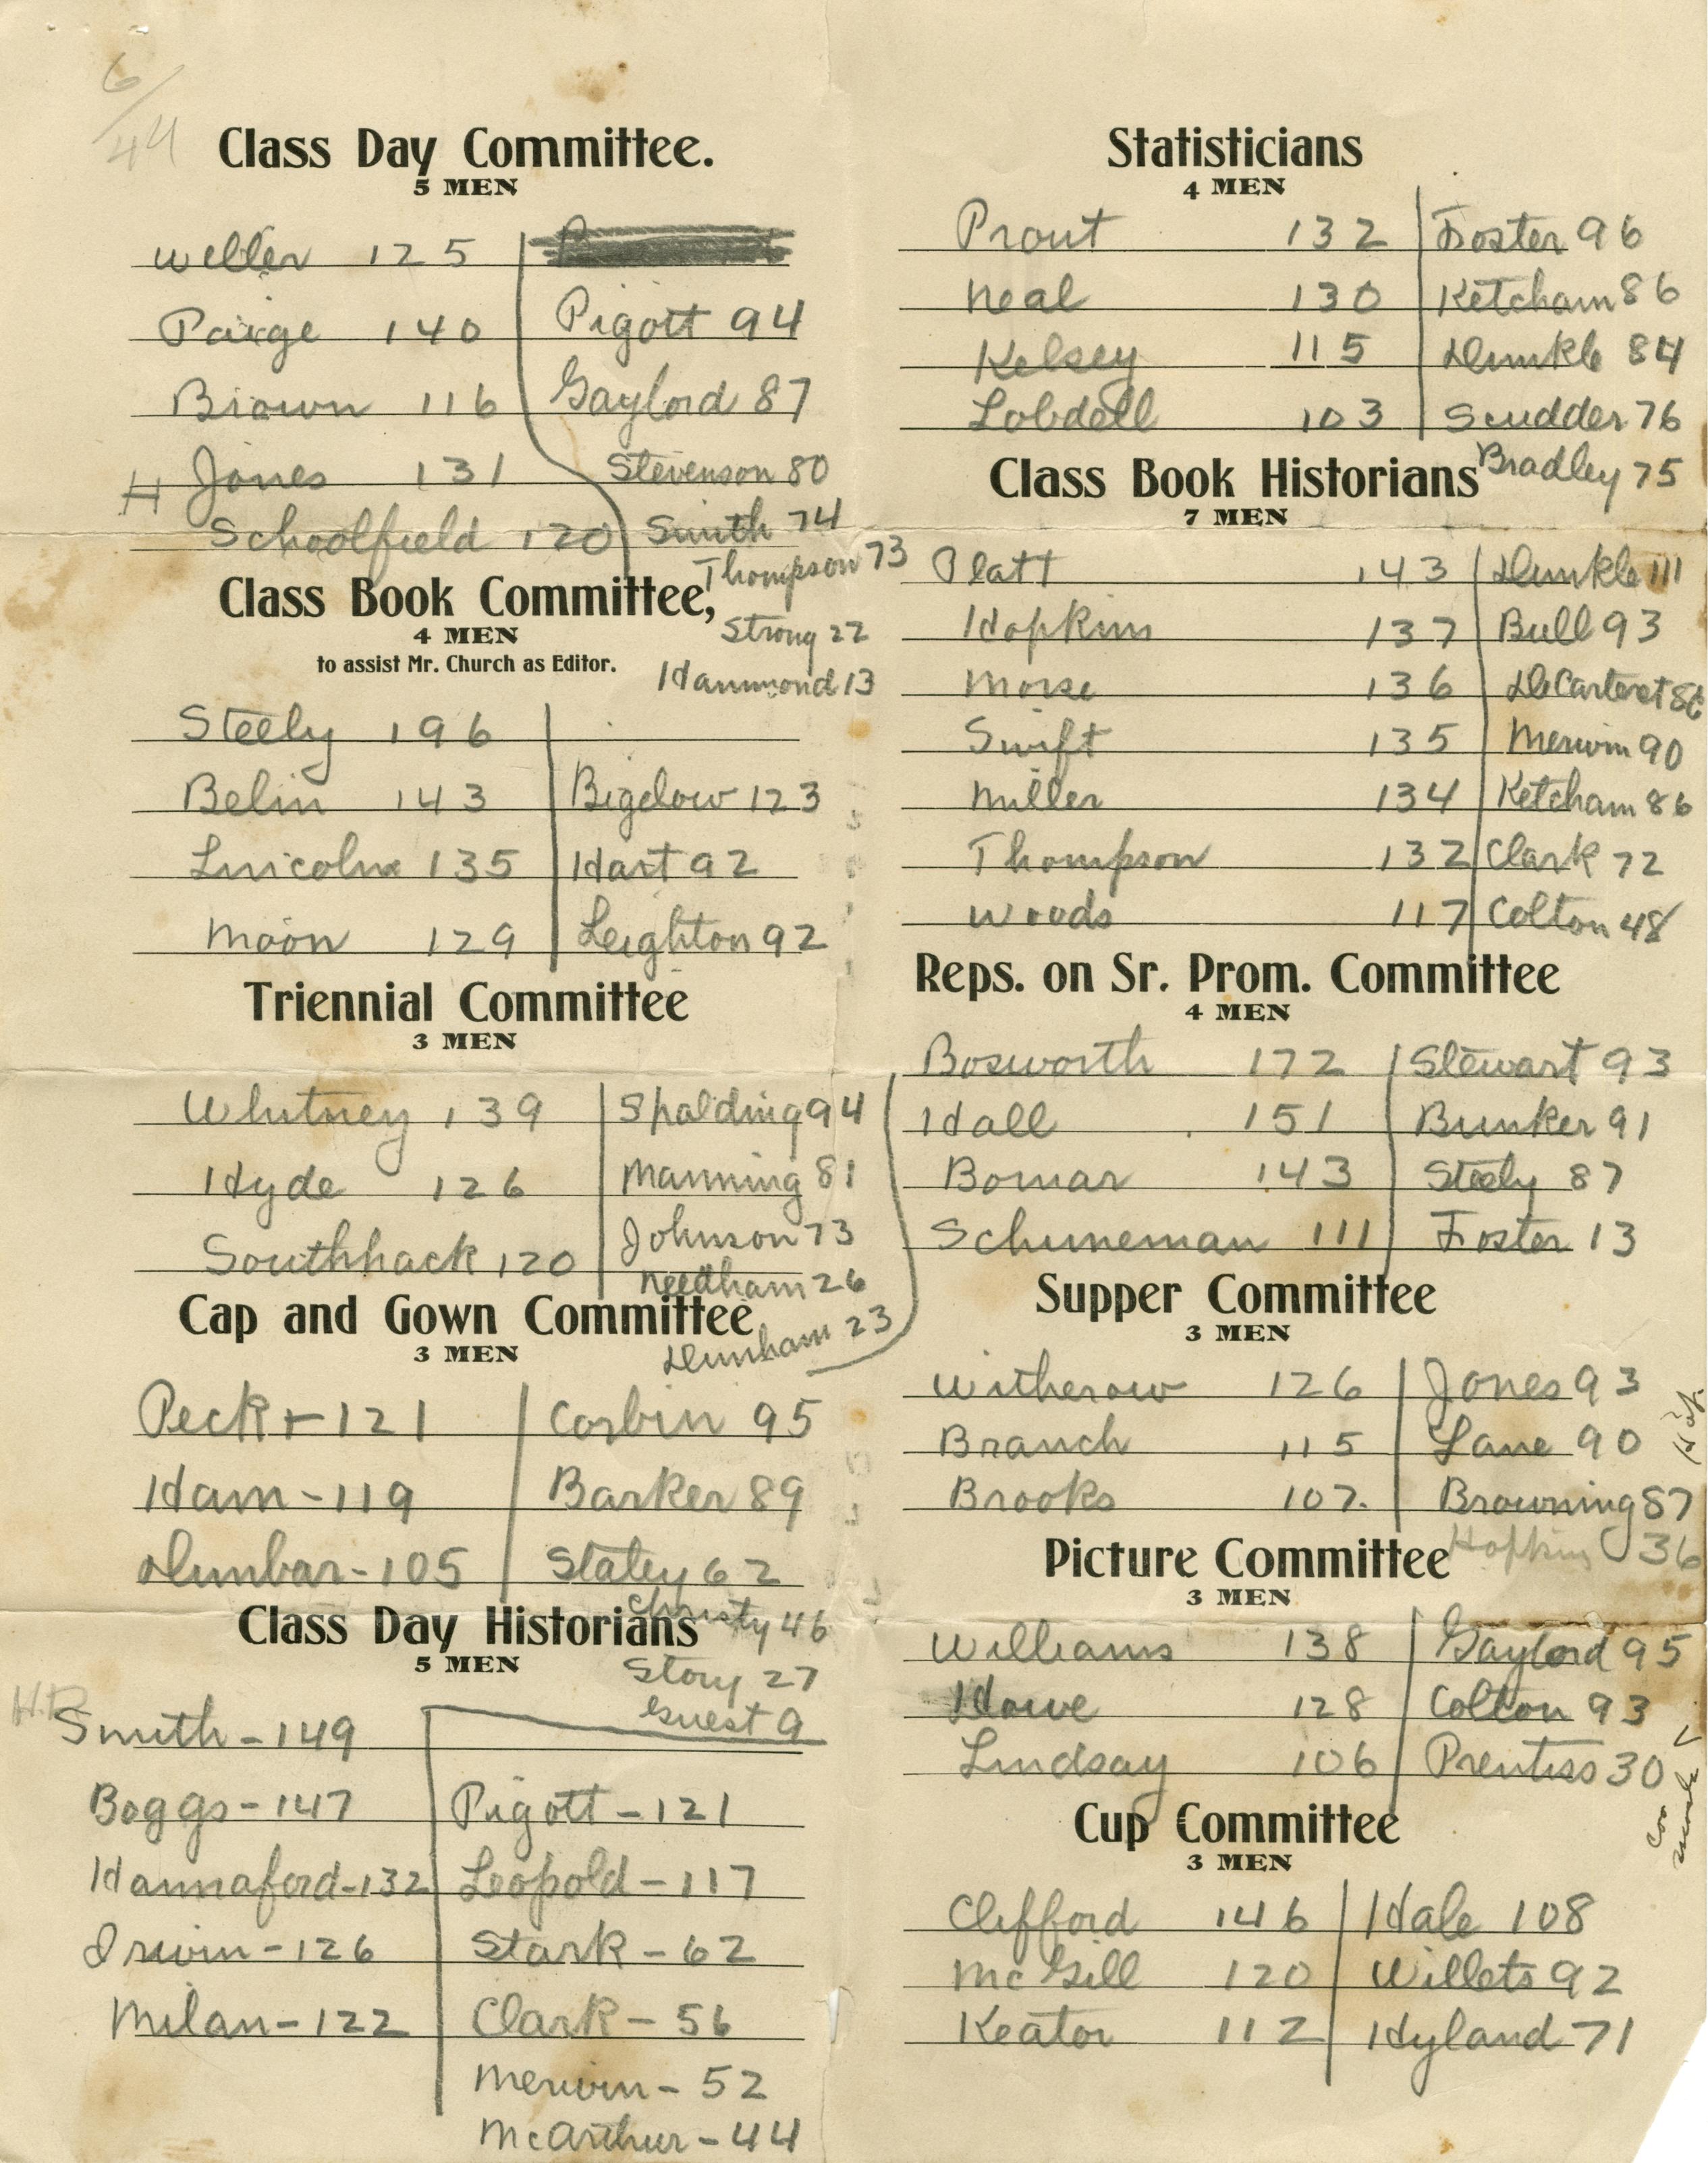 6/44
Class Day Committee.
5 MEN
Weller 125
Paige 140 Pigott 94
Brown 116 Gaylord 87
H Jones 131 Stevenson 80
Schoolfield 120 Smith 74
Thompson 73
Class Book Committee,
Strong 22
4 MEN
to assist Mr. Church as Editor.
Hammond 13
Steely 196
Belin 143 Bigelow 123
Lincoln 135 Hart 92
Moon 129 Leighton 92
Triennial Committee
3 MEN
Whitney 139 Spalding 94
Hyde 126 Manning 81
Southhack 120 Johnson 73
Needham 26
Cap and Gown Committee
Dunham 23
3 MEN
Peck 121 Corbin 95
Ham - 119 Barker 89
Dunbar - 105 Staley 62
Christy 46
Class Day Historians
5 MEN
Story 27
Guest 9
H.B. Smith - 149
Boggs - 147 Pigott - 121
Hannaford - 132 Leopold - 117
Irwin - 126 Stark - 62
Milan - 122 Clark - 56
Merwin - 52
McArthur - 44
Statisticians
4 MEN
Prout 132 Foster 96
Neal 130 Ketcham 86
Kelsey 115 Dunkle 84
Lobdell 103 Scudder 76
Bradley 75
Class Book Historians
7 MEN
Platt 143 Dunkle 111
Hopkins 137 Bull 93
Morse 136 DeCarteret 86
Swift 135 Merwin 90
Miller 134 Ketcham 86
Thompson 132 Clark 72
Woods 117 Colton 48
Reps. on Sr. Prom. Committee
4 MEN
Bosworth 172 Stewart 93
Hall 151 Bunker 91
Bomar 143 Steely 87
Schuneman 111 Foster 13
Supper Committee
3 MEN
Witherow 126 Jones 93
Branch 115 Lane 90
Brooks 107. Browning 87
Hopkins 36
Picture Committee
3 MEN
Williams 138 Gaylord 95
Howe 128 Colton 93
Lindsay 106 Prentiss 30
Cup Committee
3 MEN
Clifford 146 Hale 108
McGill 120 Willets 92
Keator 112 Hyland 71